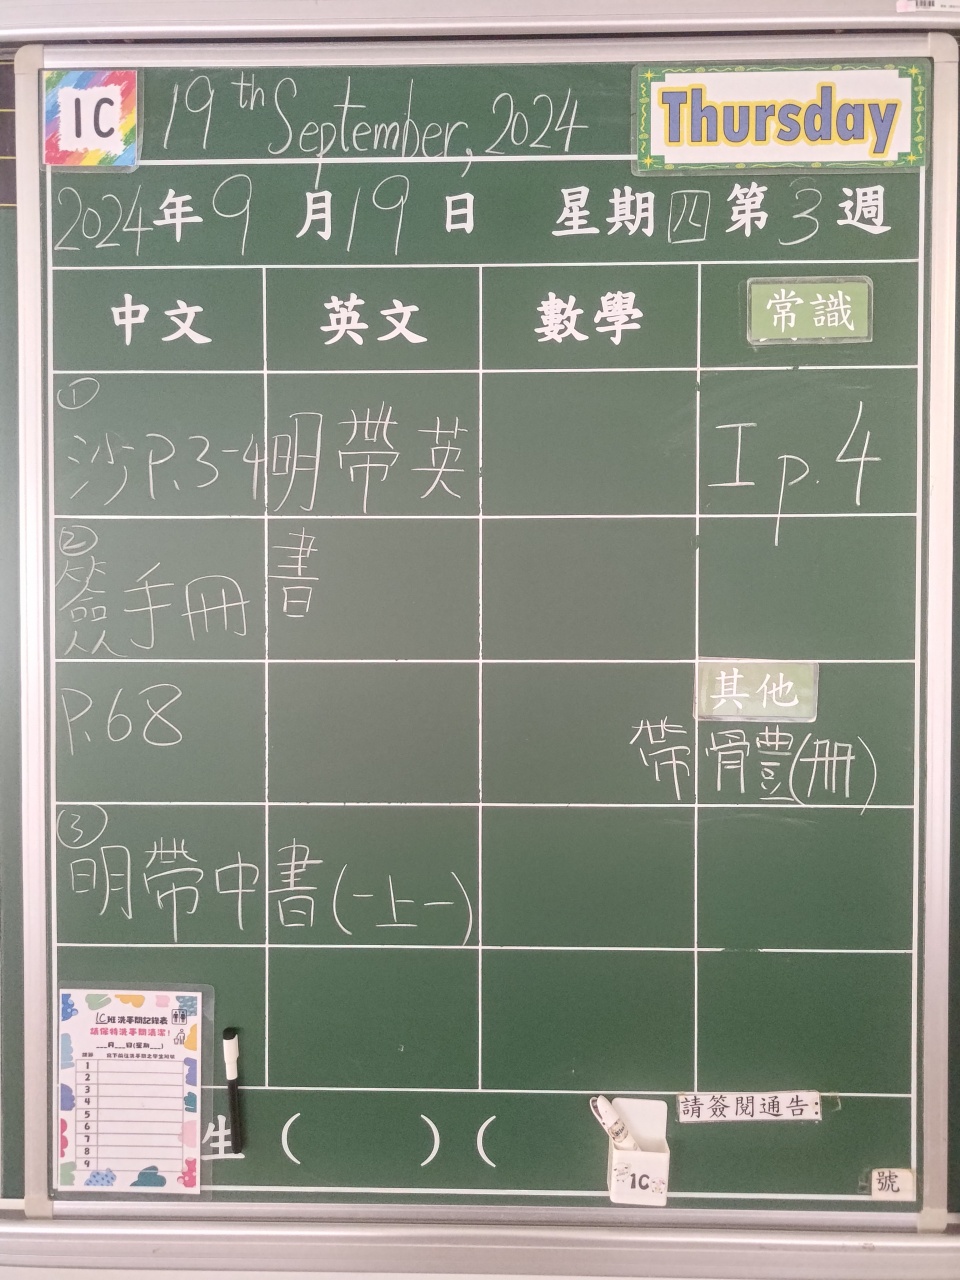 1C
19th September, 2024
Thursday
2024年9月19日 星期四 第3週
中文 英文 數學 常識
①
沙P.3-4 明帶英 I p.4
② 書
簽手冊
P.68
其他
帶骨豐(冊)
③
明帶中書(一上一)
1C班洗手間記錄表
請保持洗手間清潔!
___月___日(星期___)
1
2
3
4
5
6
7
8
9
生( )(
請簽閱通告
1C
號